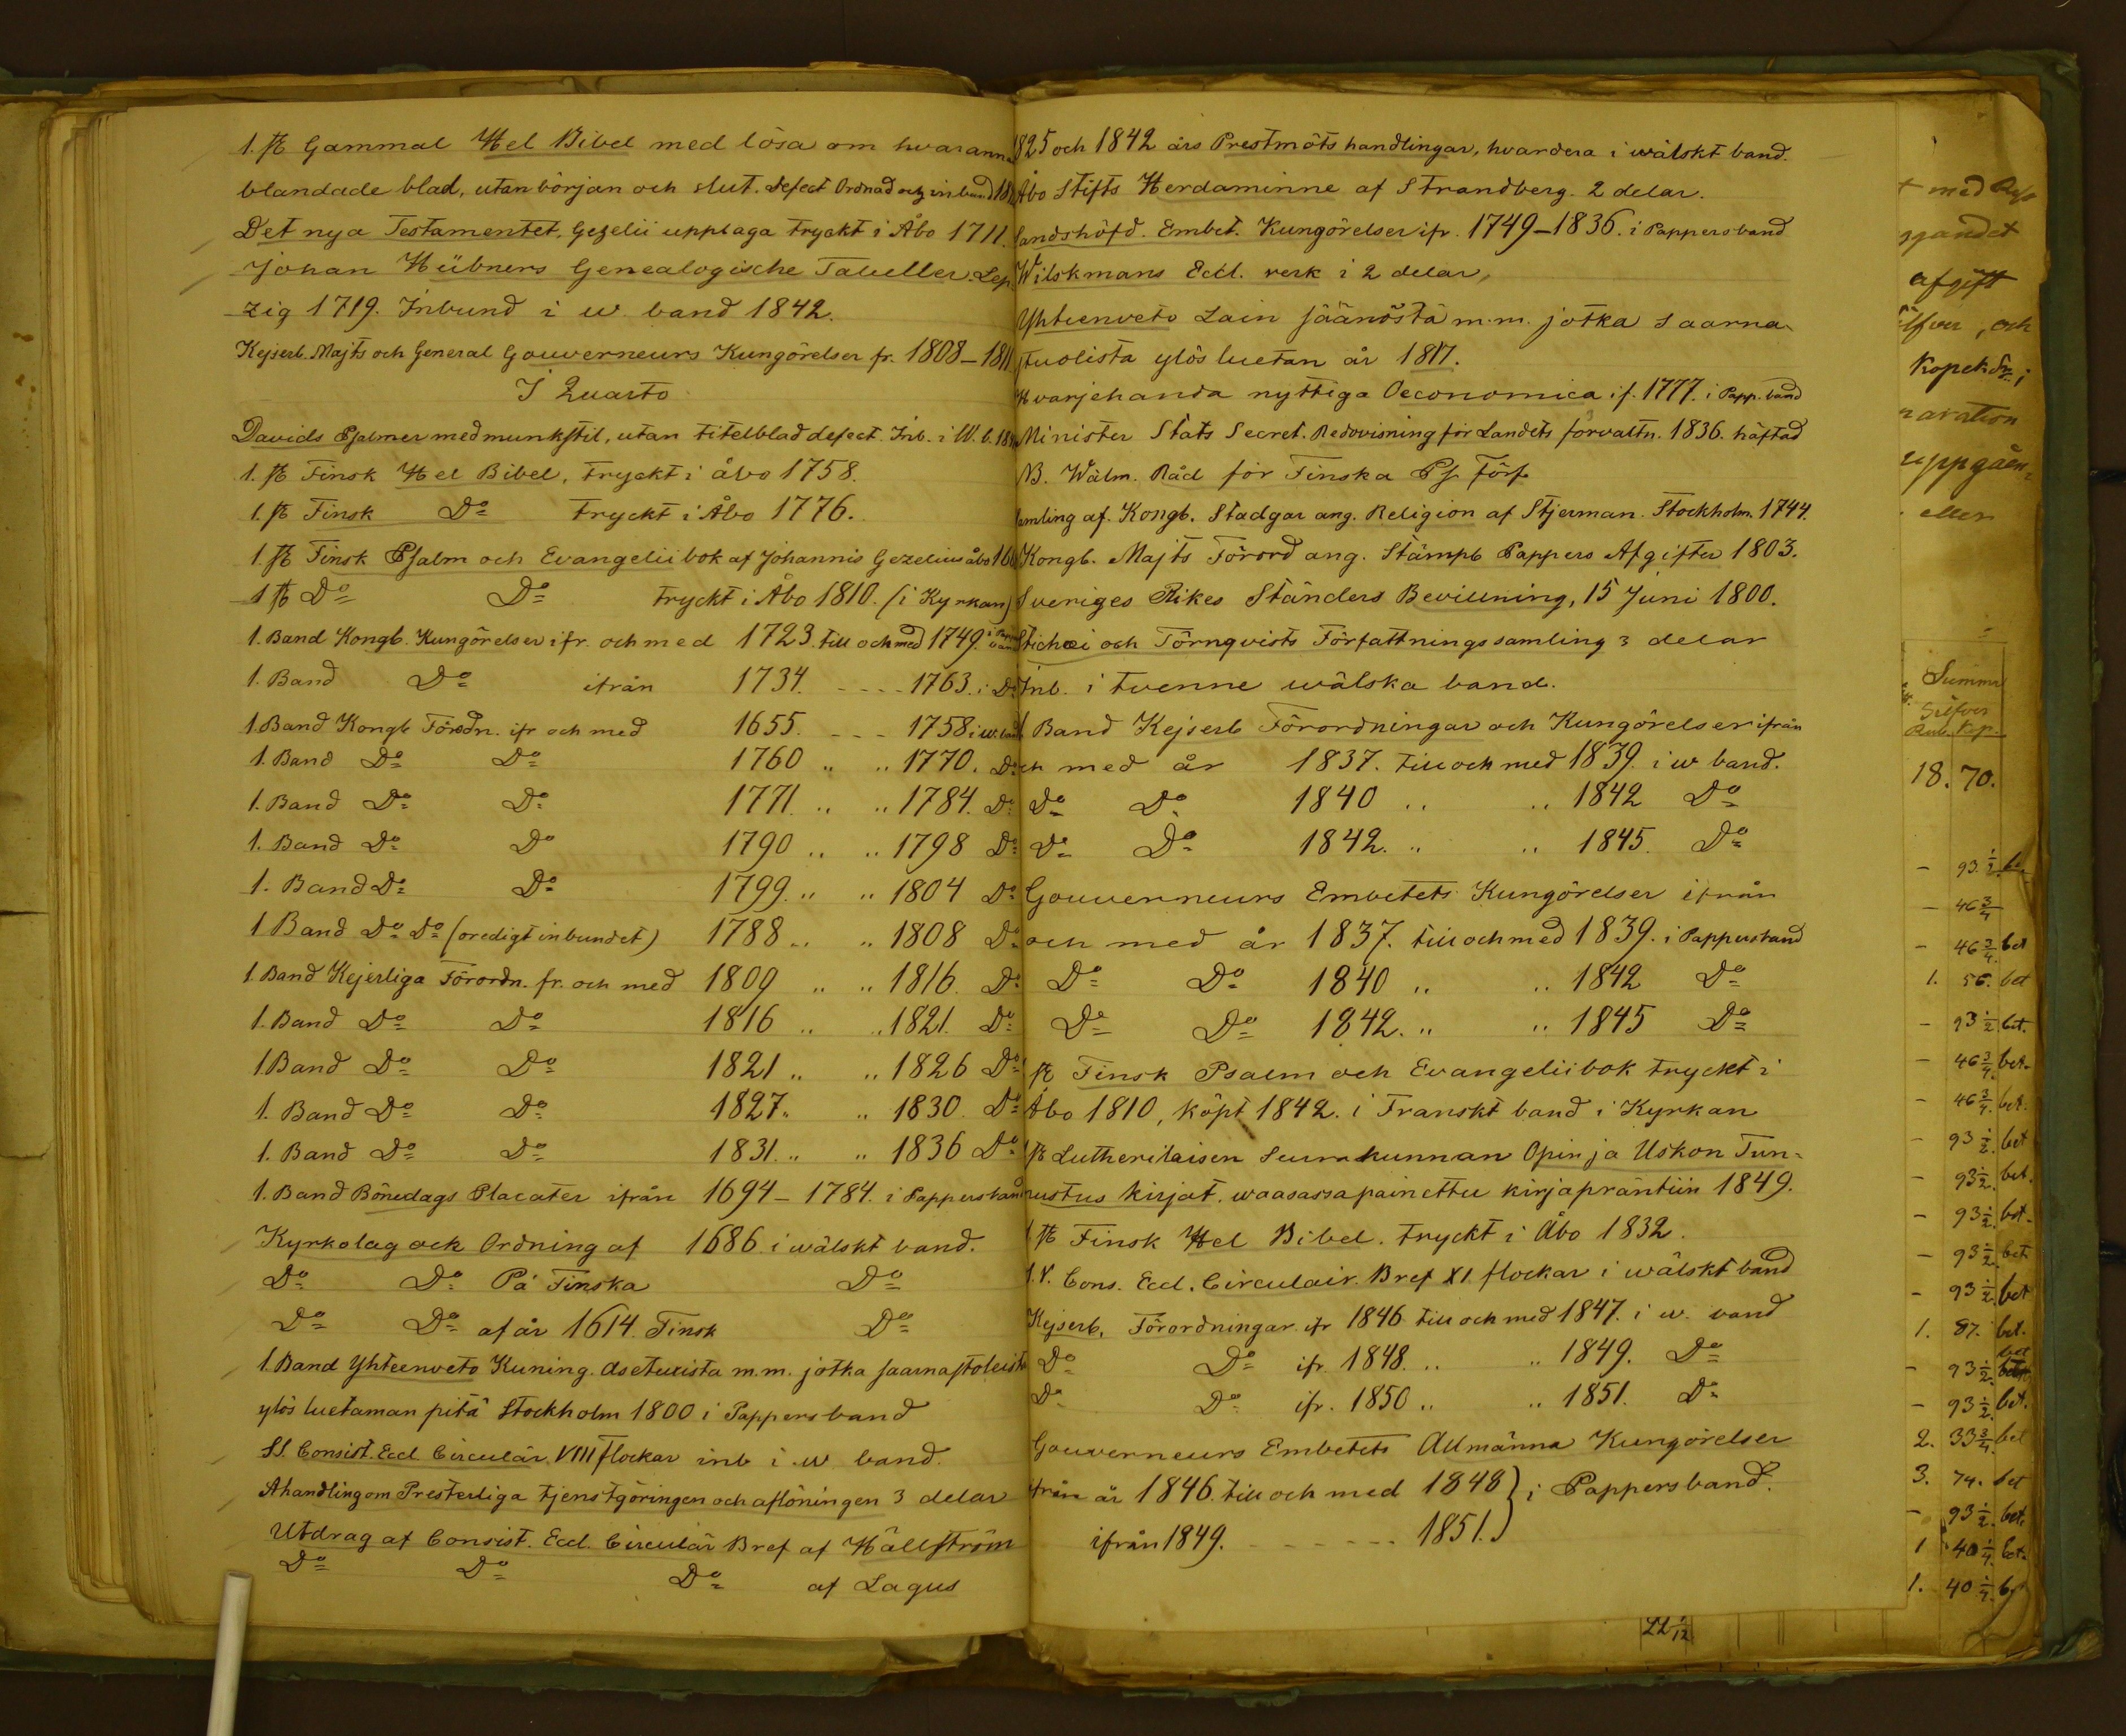 1. st Gammal Hel Bibel med lösa om hvaranna
blandade blad, utan början och slut. defect Ordnad och inbund 18
Det nya Testamentet, Gezelii upplaga tryckt i Åbo 1711.
Johan Hübners Genealogische Tabeller. Lep.
zig 1719. Inbund i w. band 1842.
Kejserl. Majts och General Gouverneurs Kungörelser fr. 1808–1811
I Quarto
Davids Psalmer med munkstil, utan titelblad defect. Inb. i W. b. 184
1. st Finsk Hel Bibel, tryckt i åbo 1758.
1. st Finsk Do tryckt i Åbo 1776.
1. st Finsk Psalm och Evangelii bok af Johannis Gezelius åbo 16
1 st Do Do tryckt i Åbo 1810. (i Kyrkan)
1. Band Kongl. Kungörelser ifr. och med 1723. till och med 1749. i Papp. band
1. Band Do ifrån 1734. - - - - 1763. i Do
1. Band Kongl Förodn. ifr och med 1655. - - - 1758 i w. band
1. Band Do Do 1760 „ „ 1770. Do
1. Band Do Do 1771. „ „ 1784. Do
1. Band Do Do 1790 „ „ 1798 Do
1. Band Do Do 1799. „ „ 1804 Do
1 Band Do Do (oredigt inbundet) 1788 „ „ 1808 Do
1. Band Kejerliga Förordn. fr. och med 1809 „ „ 1816. Do
1. Band Do Do 1816 „ „ 1821. Do
1 Band Do Do 1821 „ „ 1826 Do
1. Band Do Do 1827. „ „ 1830. Do
1. Band Do Do 1831. „ „ 1836 Do
1. Band Bönedags Placater ifrån 1694–1784. i Pappersban
Kyrkolag och Ordning af 1686. i wälskt band.
Do Do På Finska Do
Do Do af år 1614. Finsk Do
1. Band Yhteenveto Kuning. Asetuxista m.m. jotka saarnastoleista
ylös luetaman pitä Stockholm 1800 i Pappersband
Consist. Eccl. Circulär. VIII flockar inb i w. band.
Ahandling om Presterliga tjenstgöringen och aflöningen 3 delar
Utdrag af Consist. Eccl. Circulär Bref af Hällström
Do Do Do af Lagus
1825 och 1842 års Prestmöts handlingar, hvardera i wälskt band.
Åbo Stifts Herdaminne af Strandberg. 2 delar.
Landshöfd. Embet. Kungörelser ifr. 1749–1836. i Pappersband
Wilskmans Eccl. verk i 2 delar,
Yhteenveto Lain säänöstä m.m. jotka saarna
stuolista ylös luetan år 1817.
Hvarjehanda nyttiga Oeconomica if. 1777. i Papp. band
Minister Stats Secret. Redovisning för Landets förvaltn. 1836. häftad
NB. Wälm. Råd för Finska Ps. Förf
Samling af. Kongl. Stadgar ang. Religion af Stjerman. Stockholm. 1744.
Kongl. Majts Förord ang. Stämpl Pappers Afgifter 1803.
Sveriges Rikes Ständers Bevillning, 15 Juni 1800.
Stichæi och Törnqvists Författningssamling 3 delar
Inb. i tvenne wälska band.
1 Band Kejserl Förordningar och Kungörelser ifrån
och med år 1837. till och med 1839. i w band.
Do Do 1840 „ „ 1842 Do
Do Do 1842. „ „ 1845. Do
Gouverneurs Embetets Kungörelser ifrån
och med år 1837. till och med 1839. i Pappersband
Do Do 1840 „ „ 1842 Do
Do Do 1842. „ „ 1845 Do
st Finsk Psalm och Evangelii bok tryckt i
Åbo 1810, köpt 1842. i Franskt band i Kyrkan
1 st Lutherilaisen Seurakunnan Opin ja Uskon Tun-
nustus kirjat. waasassa painettu kirjapräntiin 1849.
1 st Finsk Hel Bibel. tryckt i Åbo 1832.
1. V. Cons. Eccl. Circulair. Bref XI. flockar i wälskt band
Kejserl. Förordningar ifr 1846 till och med 1847. i w. band
Do Do ifr. 1848. „ „ 1849. Do
Do Do ifr. 1850 „ „ 1851. Do
Gouverneurs Embetets Allmänna Kungörelser
från år 1846. till och med 1848 } i Pappersband.
ifrån 1849. - - - - - - 1851. }
med
afgift
ilfver, och
Kopek Sr;
naration
uppgåen-
eller
Summa
Silfver
Rub. Kop.
18. 70.
– 93 1/2
– 46 3/4
– 46 3/4. bet
1. 56. bet
– 93 1/2. bet.
– 46 3/4. bet.
– 46 3/4. bet.
– 93 1/2. bet
– 93 1/2. bet.
– 93 1/2. bet.
– 93 1/2. bet
– 93 1/2. bet
1. 87. bet.
– 93 1/2. bet
– 93 1/2. bet.
2. 33 3/4. bet
3. 74. bet
– 93 1/2. bet.
1 40 1/4. bet.
1. 40 1/4.